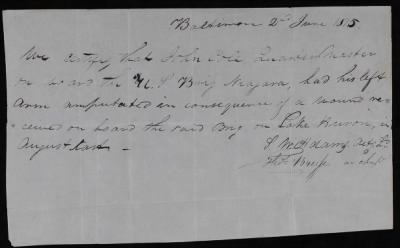 Baltimore 2d June 1815
We certify, that John Cole Quarter Master
on board the U. S Brig Niagara, had his left
Arm amputated in consequence of a wound re-
ceived on board the said Brig, on Lake Huron, in
August last -
S. W. Adams